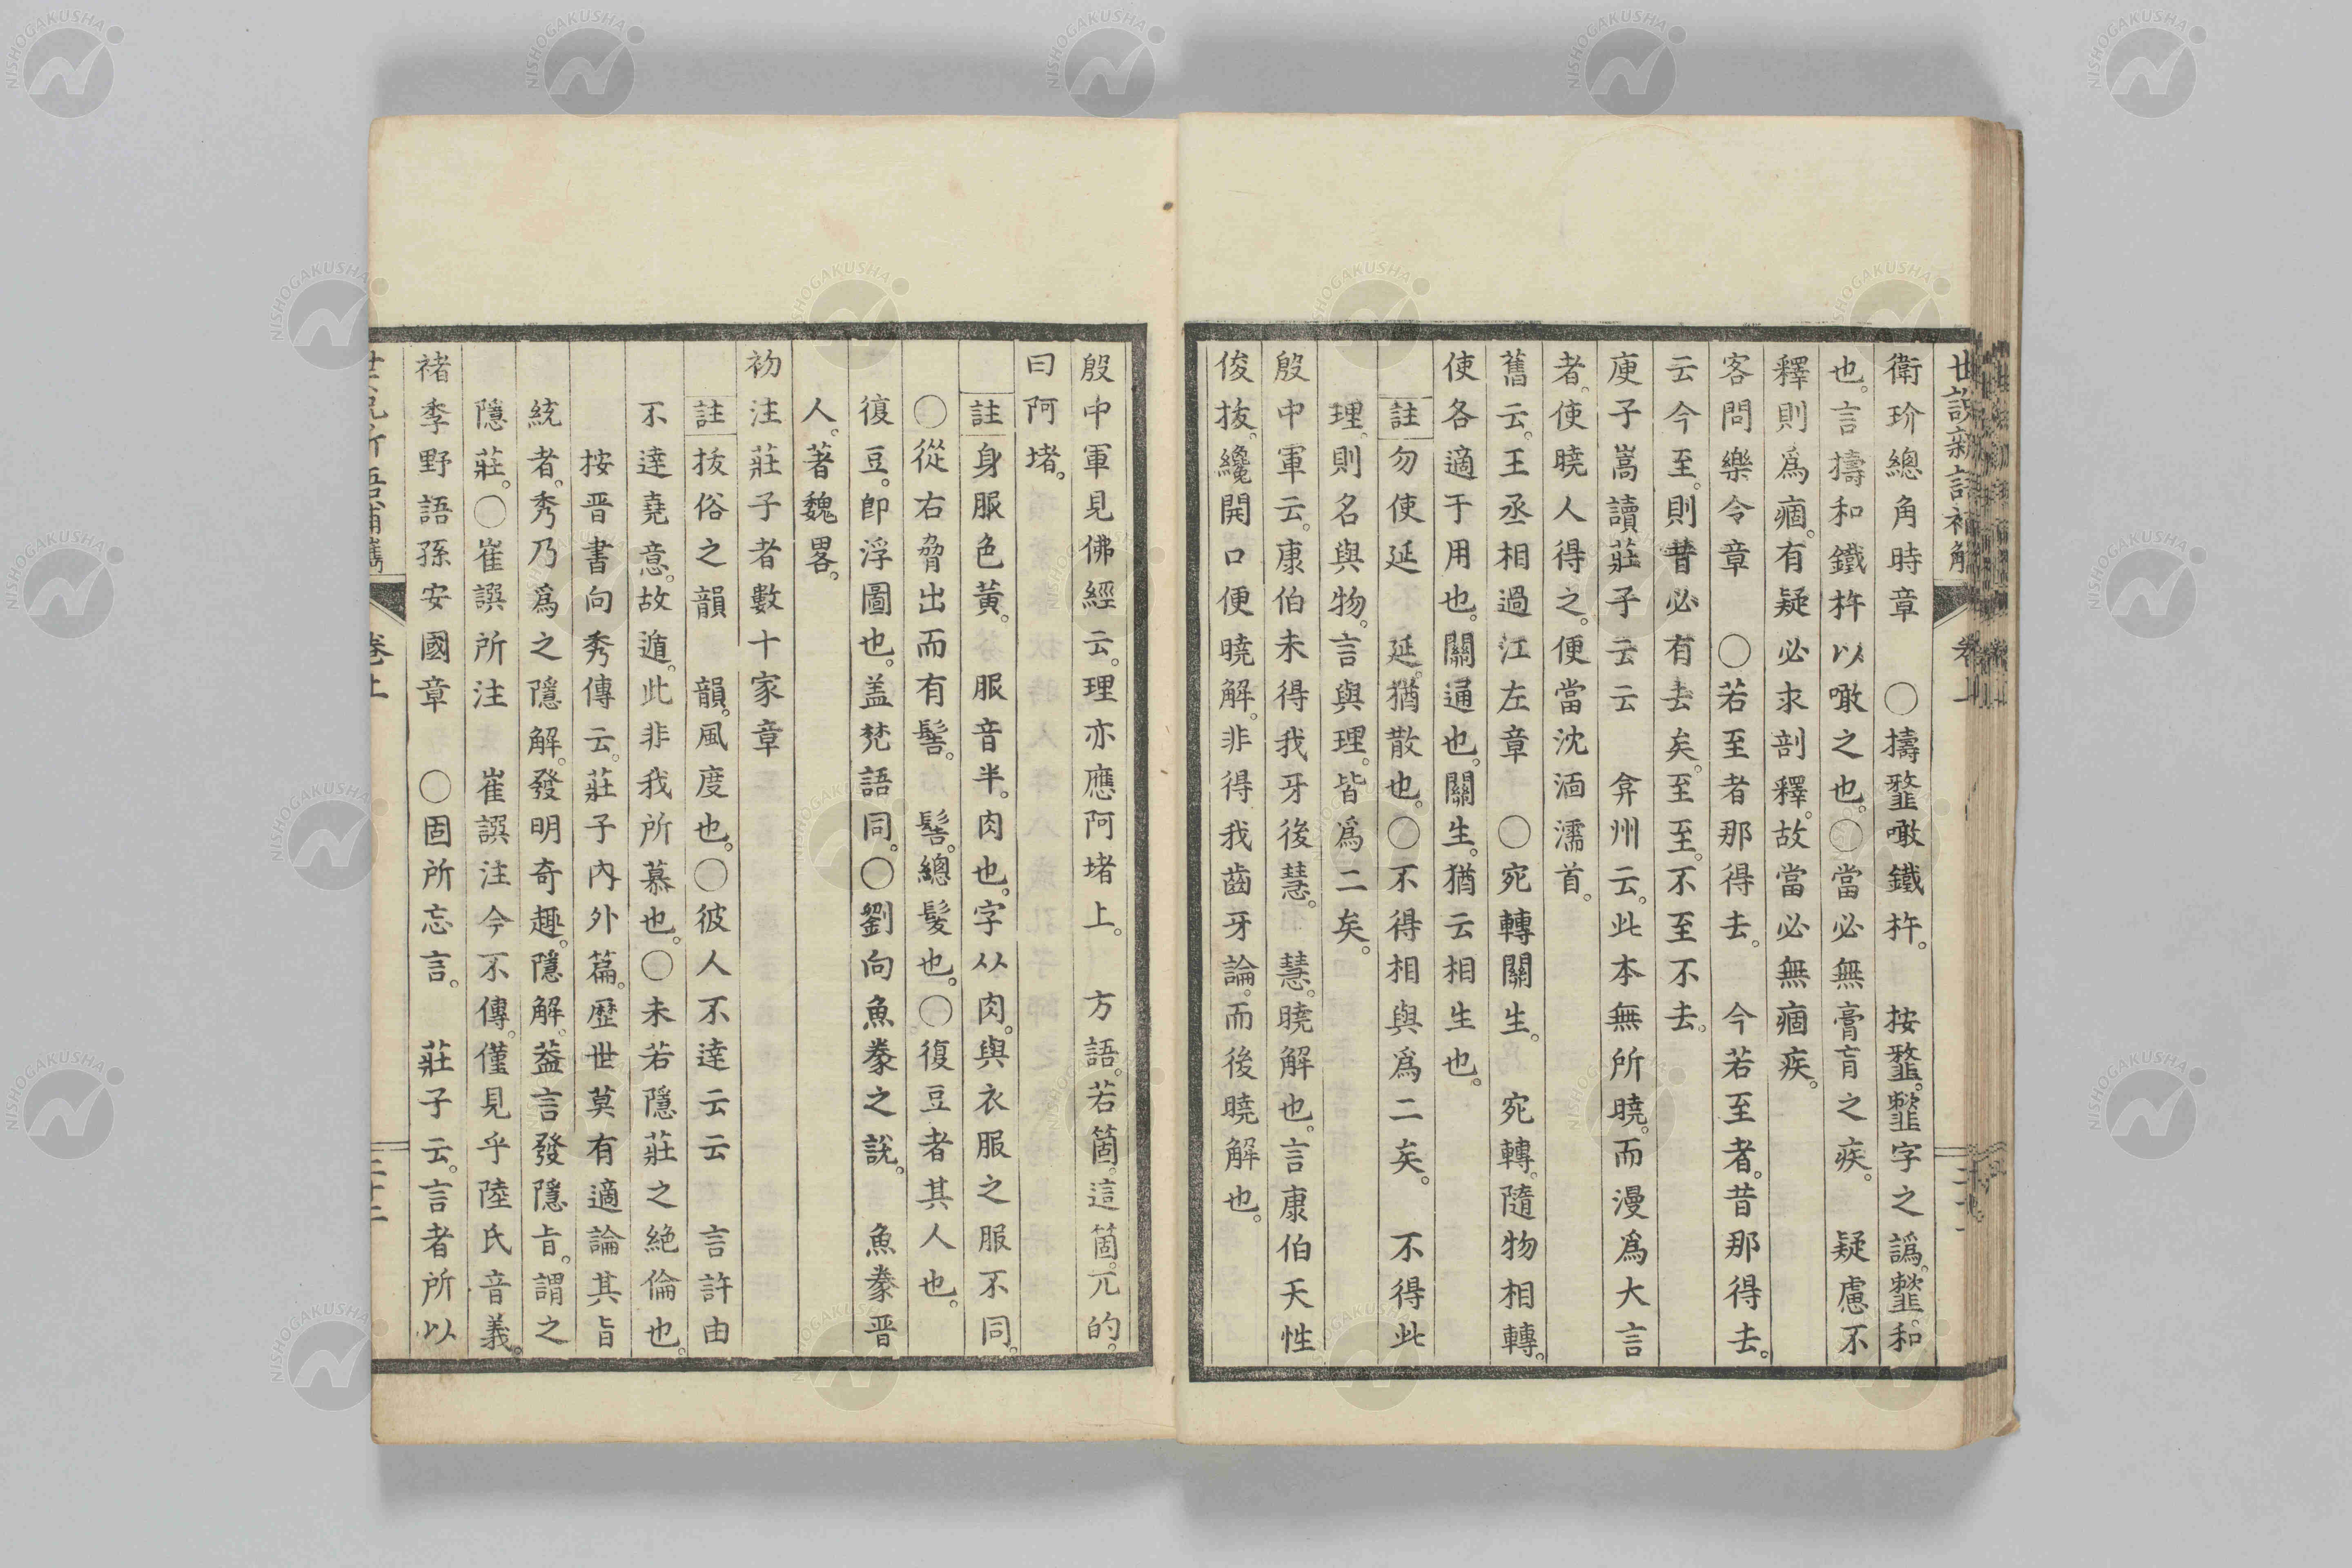 衛玠總角時章　〇擣韲噉鐵杵。　按韲。虀字之譌。虀和
也。言擣和鐵杵以噉之也。〇當必無膏肓之疾。　疑慮不
釋則爲痼。有疑必求剖釋。故當必無痼疾。
客問樂令章　〇若至者那得去。　今若至者。昔那得去。
云今至。則昔必有去矣。至至。不至不去。
庾子嵩讀莊子云云　弇州云。此本無所曉。而漫爲大言
者。使曉人得之。便當沈湎濡首。
舊云。王丞相過江左章　〇宛轉關生。　宛轉。隨物相轉。
使各適于用也。關通也。關生。猶云相生也。
註勿使延　延。猶散也。〇不得相與爲二矣。　不得此
理。則名與物。言與理。皆爲二矣。
殷中軍云。康伯未得我牙後慧。　慧。曉解也。言康伯天性
俊拔。纔開口便曉解。非得我齒牙論。而後曉解也。
殷中軍見佛經云。理亦應阿堵上。　方語。若箇。這箇。兀的。
曰阿堵。
註身服色黃。　服音半。肉也。字从肉。與衣服之服不同。
〇從右脅出而有髻。　髻。總髮也。〇復豆者其人也。
復豆。卽浮圖也。盖梵語同。〇劉向魚豢之說。　魚豢晋
人。著魏畧。
初注莊子者數十家章
註拔俗之韻　韻。風度也。〇彼人不達云云　言許由
不達堯意。故遁。此非我所慕也。〇未若隱莊之絶倫也。
按晋書向秀傳云。莊子內外篇。歷世莫有適論其旨
統者。秀乃爲之隱解。發明奇趣。隱解。葢言發隱旨。謂之
隱莊。〇崔譔所注　崔譔注今不傳。僅見乎陸氏音義。
褚季野語孫安國章　〇固所忘言。　莊子云。言者所以